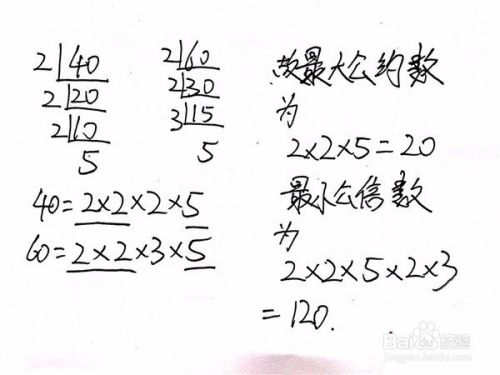 2 40
2 20
2 10
5
2 60
2 30
3 15
5
40=2×2×2×5
60=2×2×3×5
故最大公约数
为
2×2×5=20
最小公倍数
为
2×2×5×2×3
=120.
Baidu经验
jingyan.baidu.com